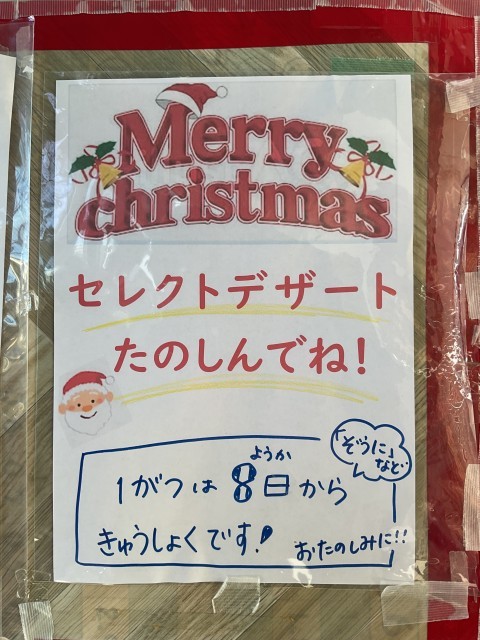 Merry
christmas
セレクトデザート
たのしんでね！
「ぞうに」
など
ようか
1がつは8日から
きゅうしょくです！
おたのしみに!!